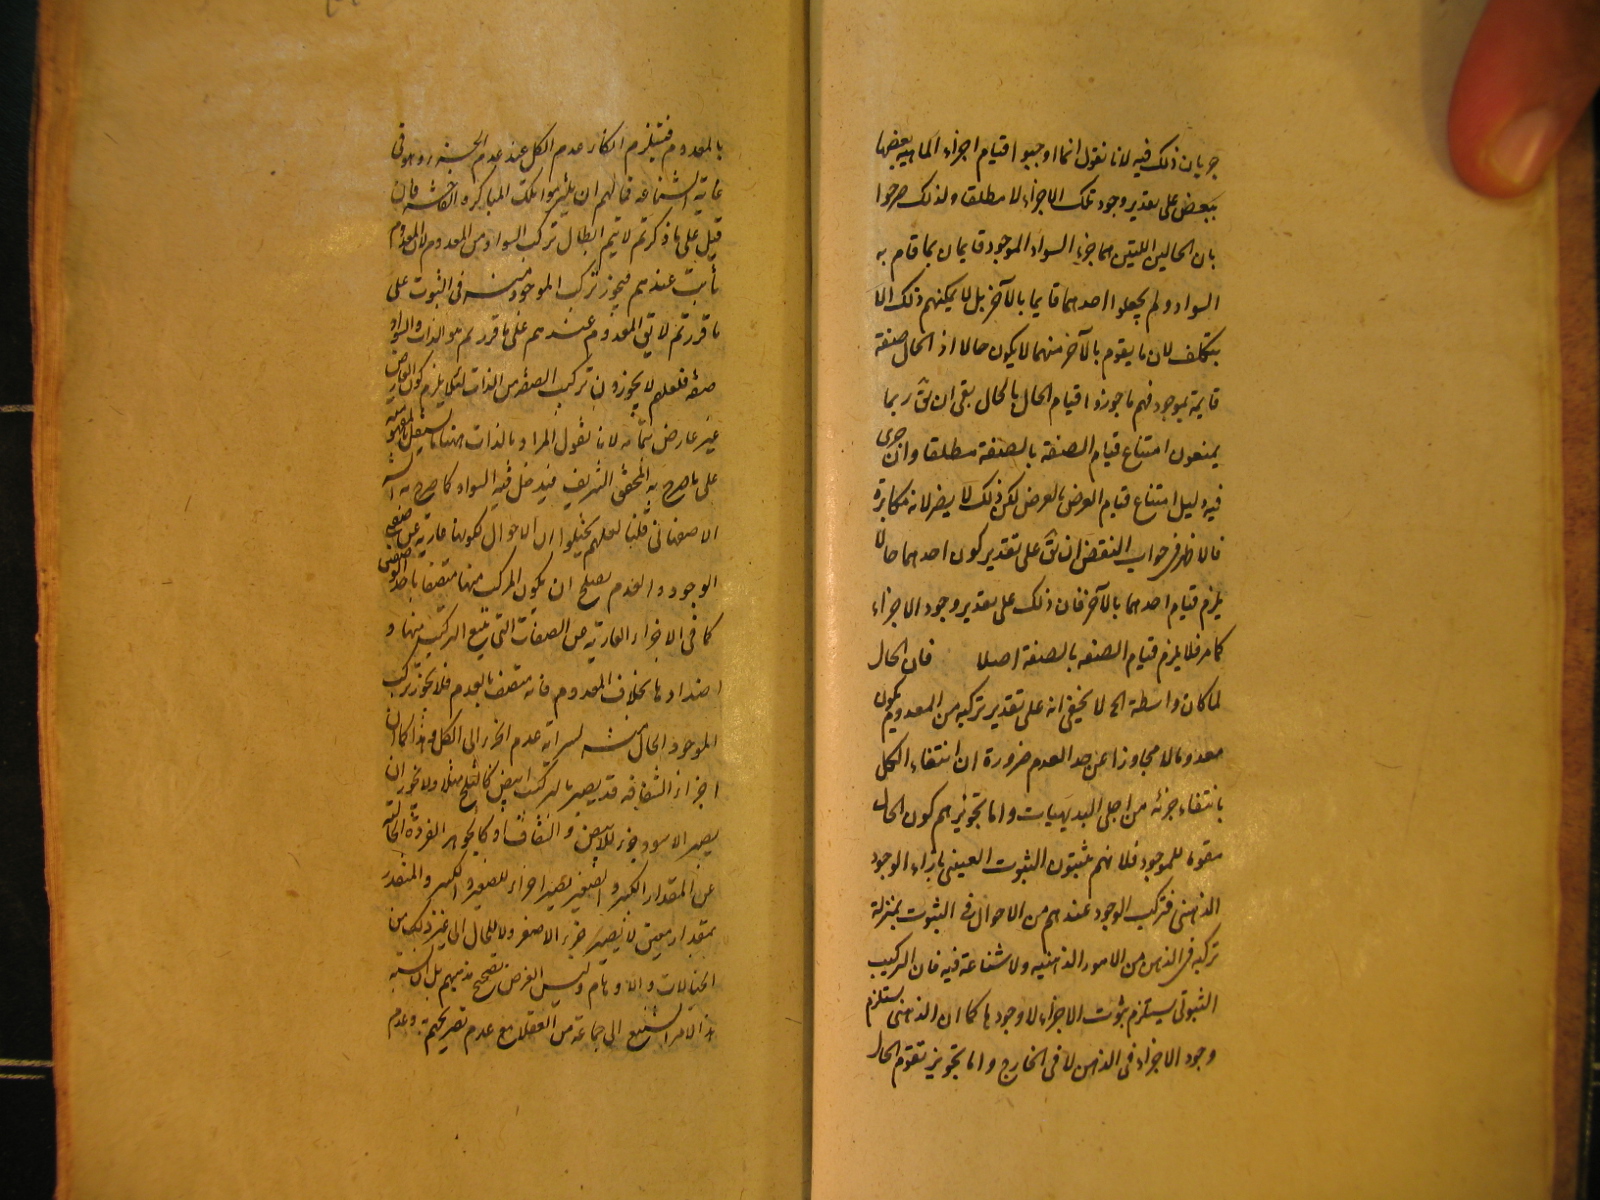 جريان ذلك فيه لانا نقول انما اوجبوا قيام اجزاء الماهية بعضها
ببعض على تقدير وجود تلك الاجزاء لا مطلقا ولذلك صرحوا
بان الحالين اللتين هما جزء السواد الموجود قايمان بما قام به
السواد ولم يجعلوا احدهما قايما بالآخر بل لا يمكنهم ذلك الا
بتكلف لان ما يقوم بالآخر منهما لا يكون حالا اذ الحال صفة
قايمة بموجود فهم ما جوزوا قيام الحال بالحال بقى ان يق ربما
يمنعون امتناع قيام الصفة بالصفة مطلقا وان جرى
فيه دليل امتناع قيام العرض بالعرض لكن ذلك لا يضر لانه مكابرة
فالاظهر فى جواب النقض ان يق على تقدير كون احدهما حالا
يلزم قيام احدهما بالآخر فان ذلك على تقدير وجود الاجزاء
كما مر فلا يلزم قيام الصفة بالصفة اصلا فان الحال
لما كان واسطة الخ لا يخفى انه على تقدير تركبه من المعدوم يكون
معدوما لا مجاوزا عن حد العدم ضرورة ان انتفاء الكل
بانتفاء جزئه من اجلى البديهيات واما تجويزهم كون الحال
مقوما للموجود فلانهم مثبتون الثبوت العينى بازاء الوجود
الذهنى فتركب الوجود عندهم من الاحوال فى الثبوت بمنزلة
تركبه فى الذهن من الامور الذهنية ولا شناعة فيه فان التركيب
الثبوتى يستلزم ثبوت الاجزاء لا وجودها كما ان الذهنى يستلزم
وجود الاجزاء فى الذهن لا فى الخارج واما تجويز تقوم الحال
بالمعدوم فيستلزم انكار عدم الكل عند عدم الجزء وهو فى
غاية الشناعة فما لهم ان يلتزموا تلك المكابرة الفاحشة فان
قيل على ما ذكرتم لا يتم ابطال تركب السواد من المعدوم لان المعدوم
ثابت عندهم فيجوز تركب الموجود منه فى الثبوت على
ما قررتم لا يق المعدوم عندهم على ما قررتم هو الذات والسواد
صفة فلعلهم لا يجوزون تركيب الصفة من الذات لئلا يلزم كون العارض
غير عارض بتمامه لانا نقول المراد بالذات ههنا ما يستقل بالمفهومية
على ما صرح به المحقق الشريف فيدخل فيه السواد كما صرح به
الاصفهانى قلنا لعلهم تخيلوا ان الاحوال لكونها عارية عن صفتى
الوجود والعدم يصلح ان يكون المركب منها متصفا باحد الوصفين
كما فى الاجزاء العارية عن الصفات التى يتبع التركيب منها و
اضدادها بخلاف المعدوم فانه متصف بالعدم فلا يجوز تركب
الموجود الحال منه لسراية عدم الجزء الى الكل وهذا كما ان
اجزاء الشفافه قد يصير بالتركيب ابيض كالثلج مثلا ولا يجوز ان
يصير الاسود جزء للابيض والشفاف او كالجوهر الفردة الخالية
عن المقدار الكبير والصغير يصير اجزاء للصغير والكبير والمتقدر
بمقدار معين لا يصير جزء الاصغر ولا للحال الى غير ذلك من
الخيالات والاوهام وليس الغرض تصحيح مذهبهم بل ان نسبة
هذا الامر الشنيع الى جماعة من العقلاء مع عدم تصريحهم به وعدم